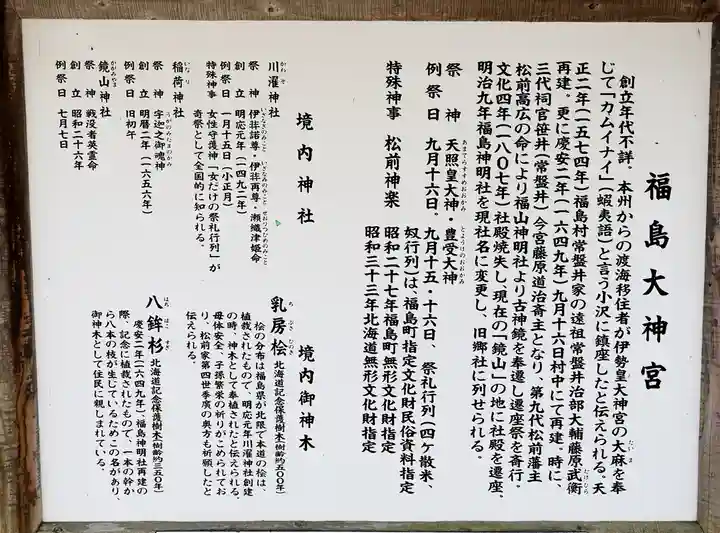 福島大神宮
創立年代不詳。本州からの渡海移住者が伊勢皇大神宮の大麻を奉
じて「カムイナイ」(蝦夷語)と言う小沢に鎮座したと伝えられる。天
正二年(一五七四年)福島村常盤井家の遠祖常盤井治部大輔藤原武衡
再建。更に慶安二年(一六四九年)九月十六日村中にて再建。時に、
三代祠官笹井(常盤井)今宮藤原道治斎主となり、第九代松前藩主
松前高広の命により福山神明社より古神鏡を奉遷し遷座祭を斎行。
文化四年(一八〇七年)社殿焼失し、現在の「鏡山」の地に社殿を遷座、
明治九年福島神明社を現社名に変更し、旧郷社に列せられる。
祭神 天照皇大神・豊受大神
例祭日 九月十六日。九月十五・十六日、祭礼行列(四ケ散米、
奴行列)は、福島町指定文化財民俗資料指定
特殊神事 松前神楽 昭和二十七年福島町無形文化財指定
昭和三十三年北海道無形文化財指定
境内神社
川濯神社
祭神 伊弉諾尊・伊弉再尊・瀬織津姫命
創立 明応元年(一四九二年)
例祭日 一月十五日(小正月)
特殊神事 女性守護神「女だけの祭礼行列」が
奇祭として全国的に知られる。
稲荷神社
祭神 宇迦之御魂神
創立 明暦二年(一六五六年)
例祭日 旧初午
鏡山神社
祭神 戦没者英霊命
創立 昭和二十六年
例祭日 七月七日
境内御神木
乳房桧 北海道記念保護樹木(樹齢約五〇〇年)
桧の分布は福島県が北限で本道の桧は、
植栽されたもので、明応元年川濯神社創建
の時、神木として奉植されたと伝えられる。
母体安全、子孫繁栄の祈りがこめられてお
り、松前家第四世季廣の奥方も祈願したと
伝えられる。
八鉾杉 北海道記念保護樹木(樹齢約三五〇年)
慶安二年(一六四九年)、福島神明社再建の
際、記念に植栽されたもので、一本の幹か
ら八本の枝が生じているためこの名があり、
御神木として住民に親しまれている。